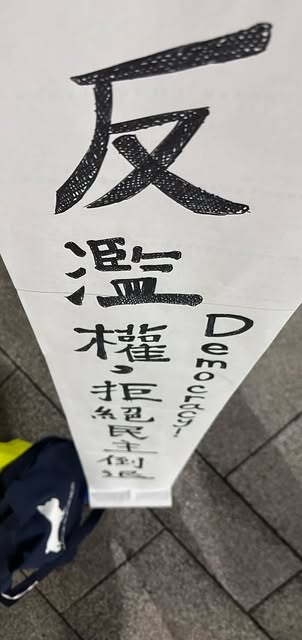 反濫權，拒絕民主倒退
Democracy!